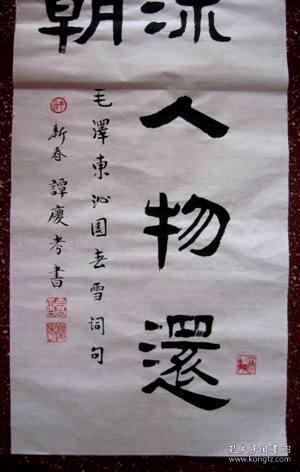 流人物還
朝
毛澤東沁園春雪詞句
新春 譚慶孝書
孔夫子旧书网
www.kongfz.com